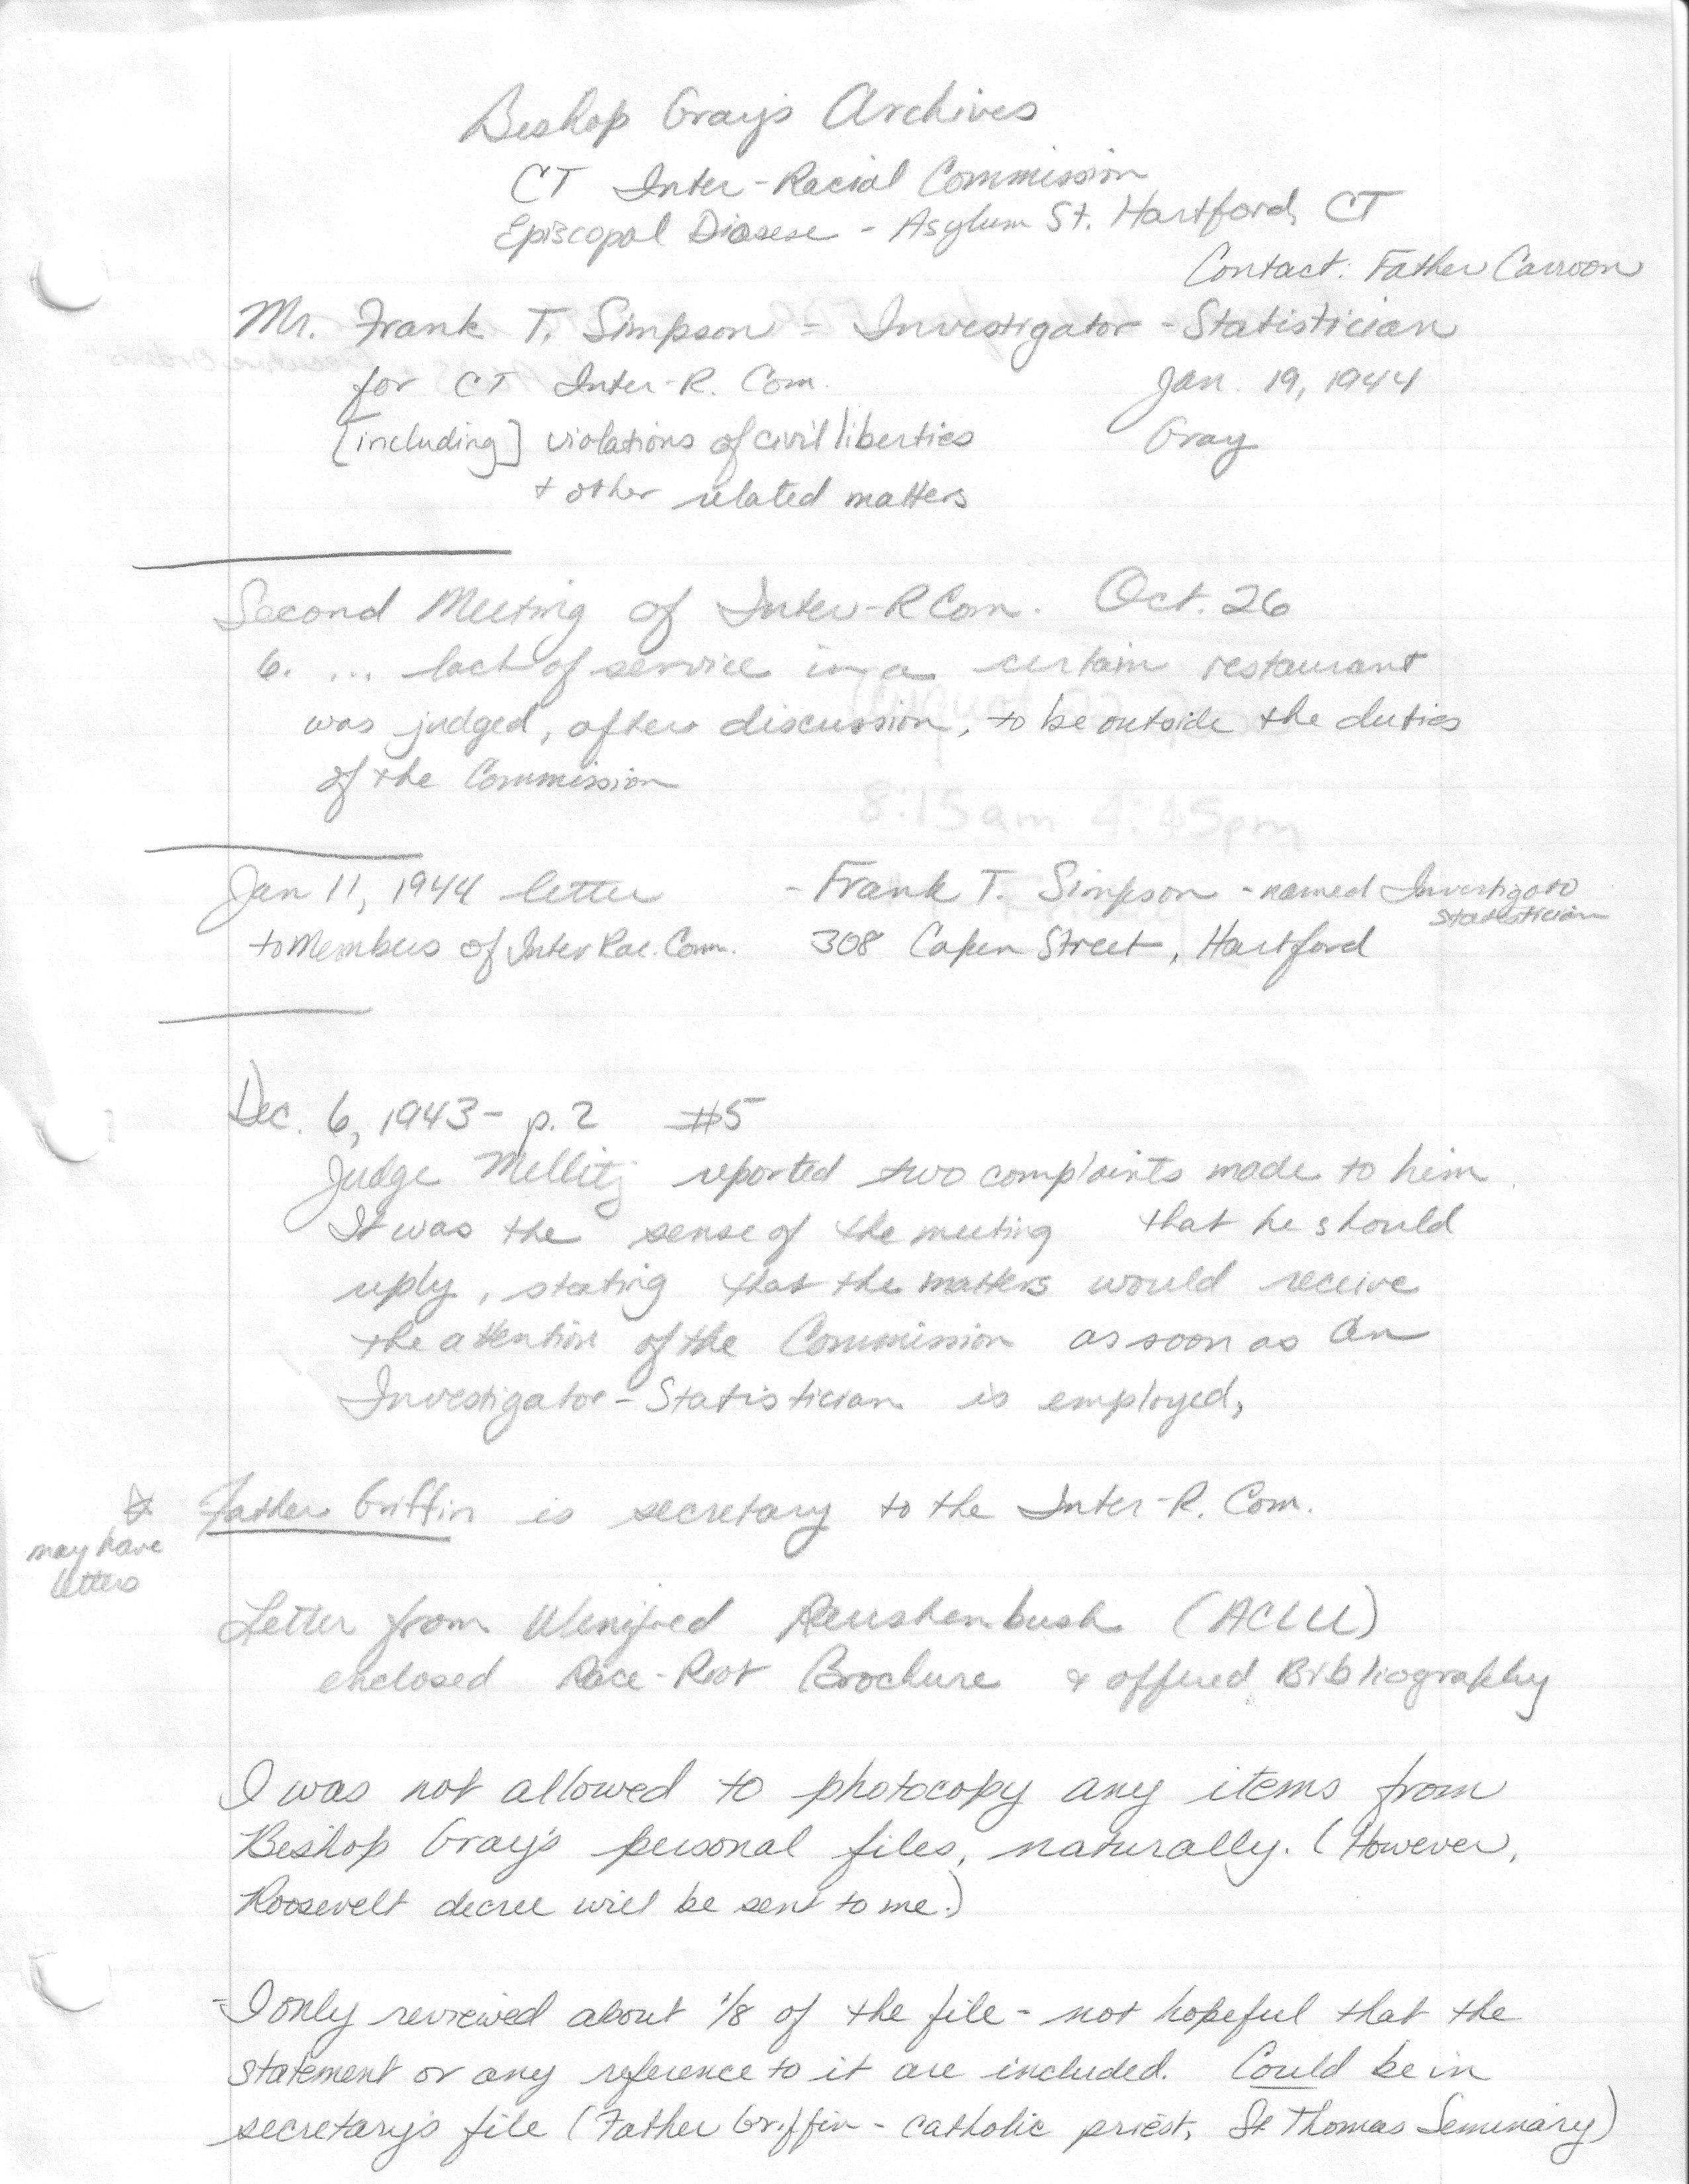 Bishop Gray's Archives
CT Inter-Racial Commission
Episcopal Diosese - Asylum St. Hartford, CT
Contact: Father Carroon
Mr. Frank T. Simpson - Investigator - Statistician
for CT Inter-R. Com. Jan. 19, 1944
[including] violations of civil liberties Gray
+ other related matters
Second Meeting of Inter-R Com. Oct. 26
6. ... lack of service in a certain restaurant
was judged, after discussion, to be outside the duties
of the Commission
8:15am 4:45pm
Jan 11, 1944 letter - Frank T. Simpson - named Investigato
Statistician
to Members of Inter Rac. Comm. 308 Capen Street, Hartford
Dec. 6, 1943 - p. 2 #5
Judge Mellitz reported two complaints made to him.
It was the sense of the meeting that he should
reply, stating that the matters would receive
the attention of the Commission as soon as an
Investigator - Statistician is employed,
☆ Father Griffin is secretary to the Inter-R. Com.
may have
letters
Letter from Winifred Raushenbush (ACLU)
enclosed Race-Riot Brochure & offered Bibliography
I was not allowed to photocopy any items from
Bishop Gray's personal files, naturally. (However,
Roosevelt decree will be sent to me.)
- I only reviewed about 1/8 of the file - not hopeful that the
statement or any reference to it are included. Could be in
secretary's file (Father Griffin - catholic priest, St Thomas Seminary)